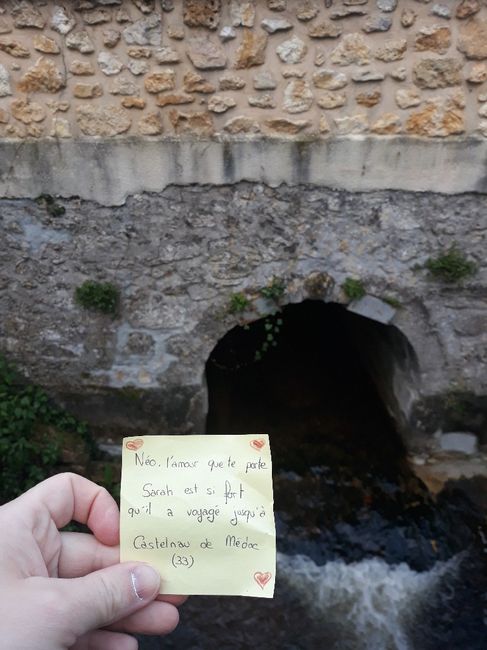 Néo, l'amour que te porte
Sarah est si fort
qu'il a voyagé jusqu'à
Castelnau de Médoc
(33)